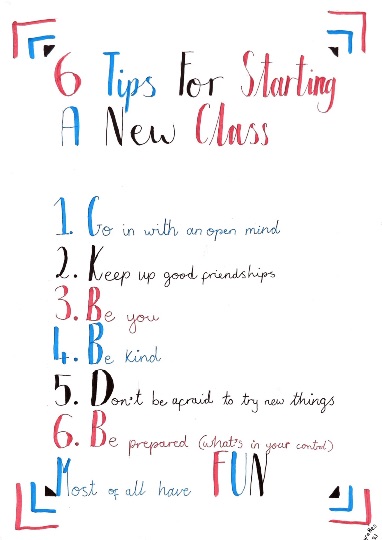 6 Tips For Starting
A New Class
1. Go in with an open mind
2. Keep up good friendships
3. Be you
4. Be Kind
5. Don't be afraid to try new things
6. Be prepared (what's in your control)
Most of all have FUN